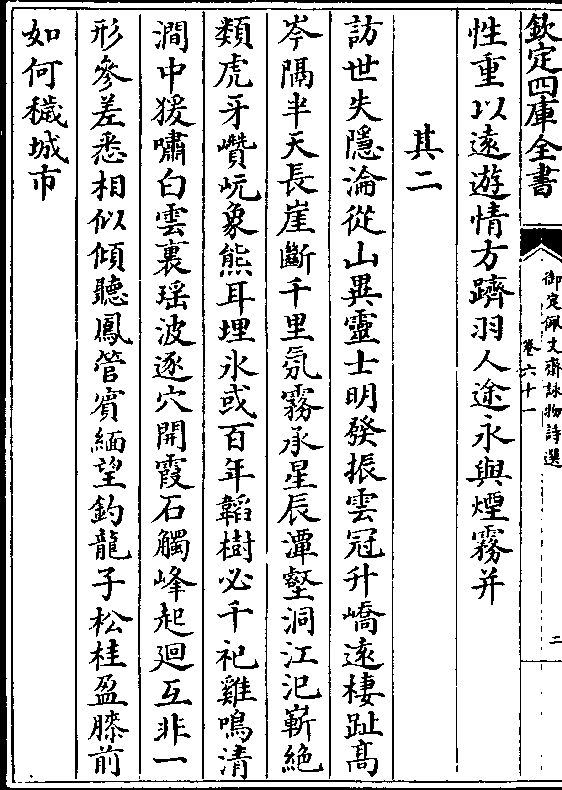 欽定四庫全書
御定佩文齋詠物詩選
卷六十一
二
性重以遠遊情方躋羽人途永與煙霧并
其二
訪世失隱淪從山異靈士明發振雲冠升嶠遠棲趾高
岑隔半天長崖斷千里氛霧承星辰潭壑洞江汜嶄絶
類虎牙巑岏象熊耳埋氷或百年韜樹必千祀雞鳴清
澗中猨嘯白雲裏瑶波逐穴開霞石觸峰起廻互非一
形參差悉相似傾聽鳳管賓緬望釣龍子松桂盈膝前
如何穢城市